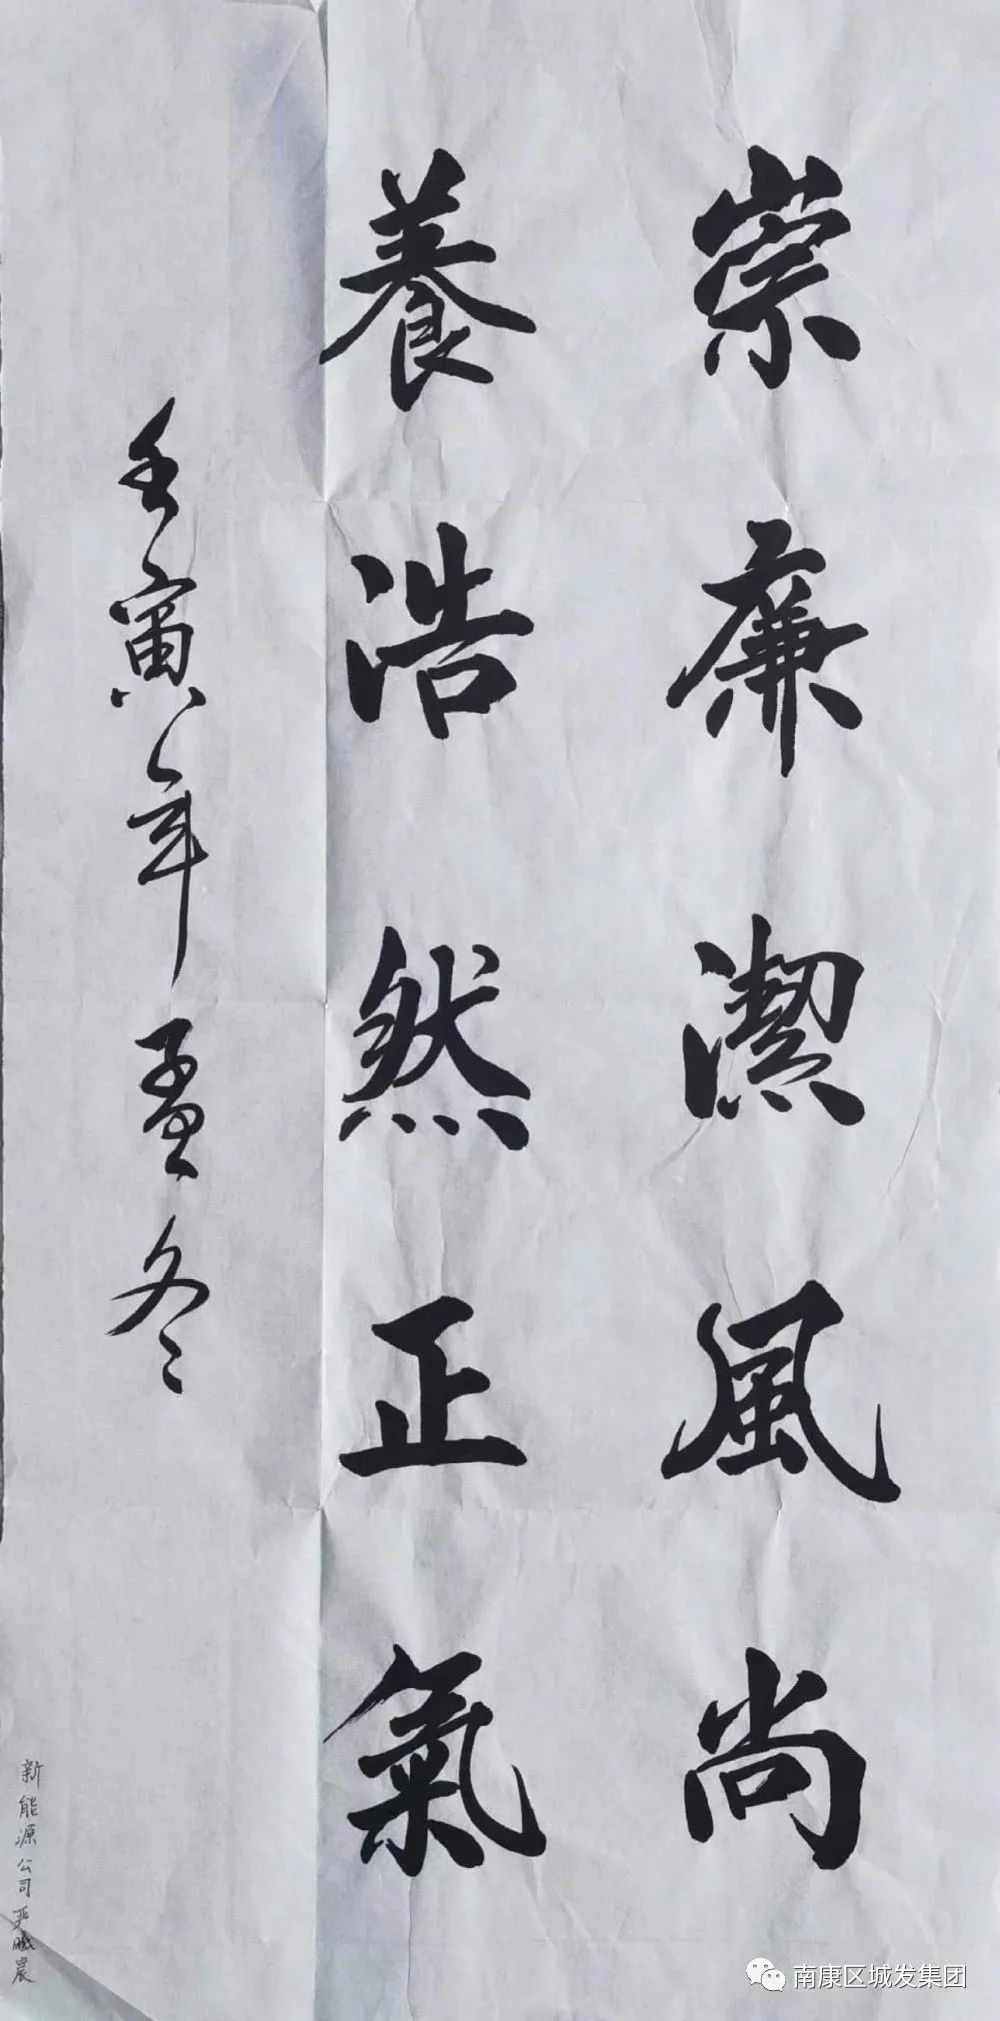 崇廉潔風尚
養浩然正氣
壬寅年孟冬
新能源公司严曦晨
南康区城发集团